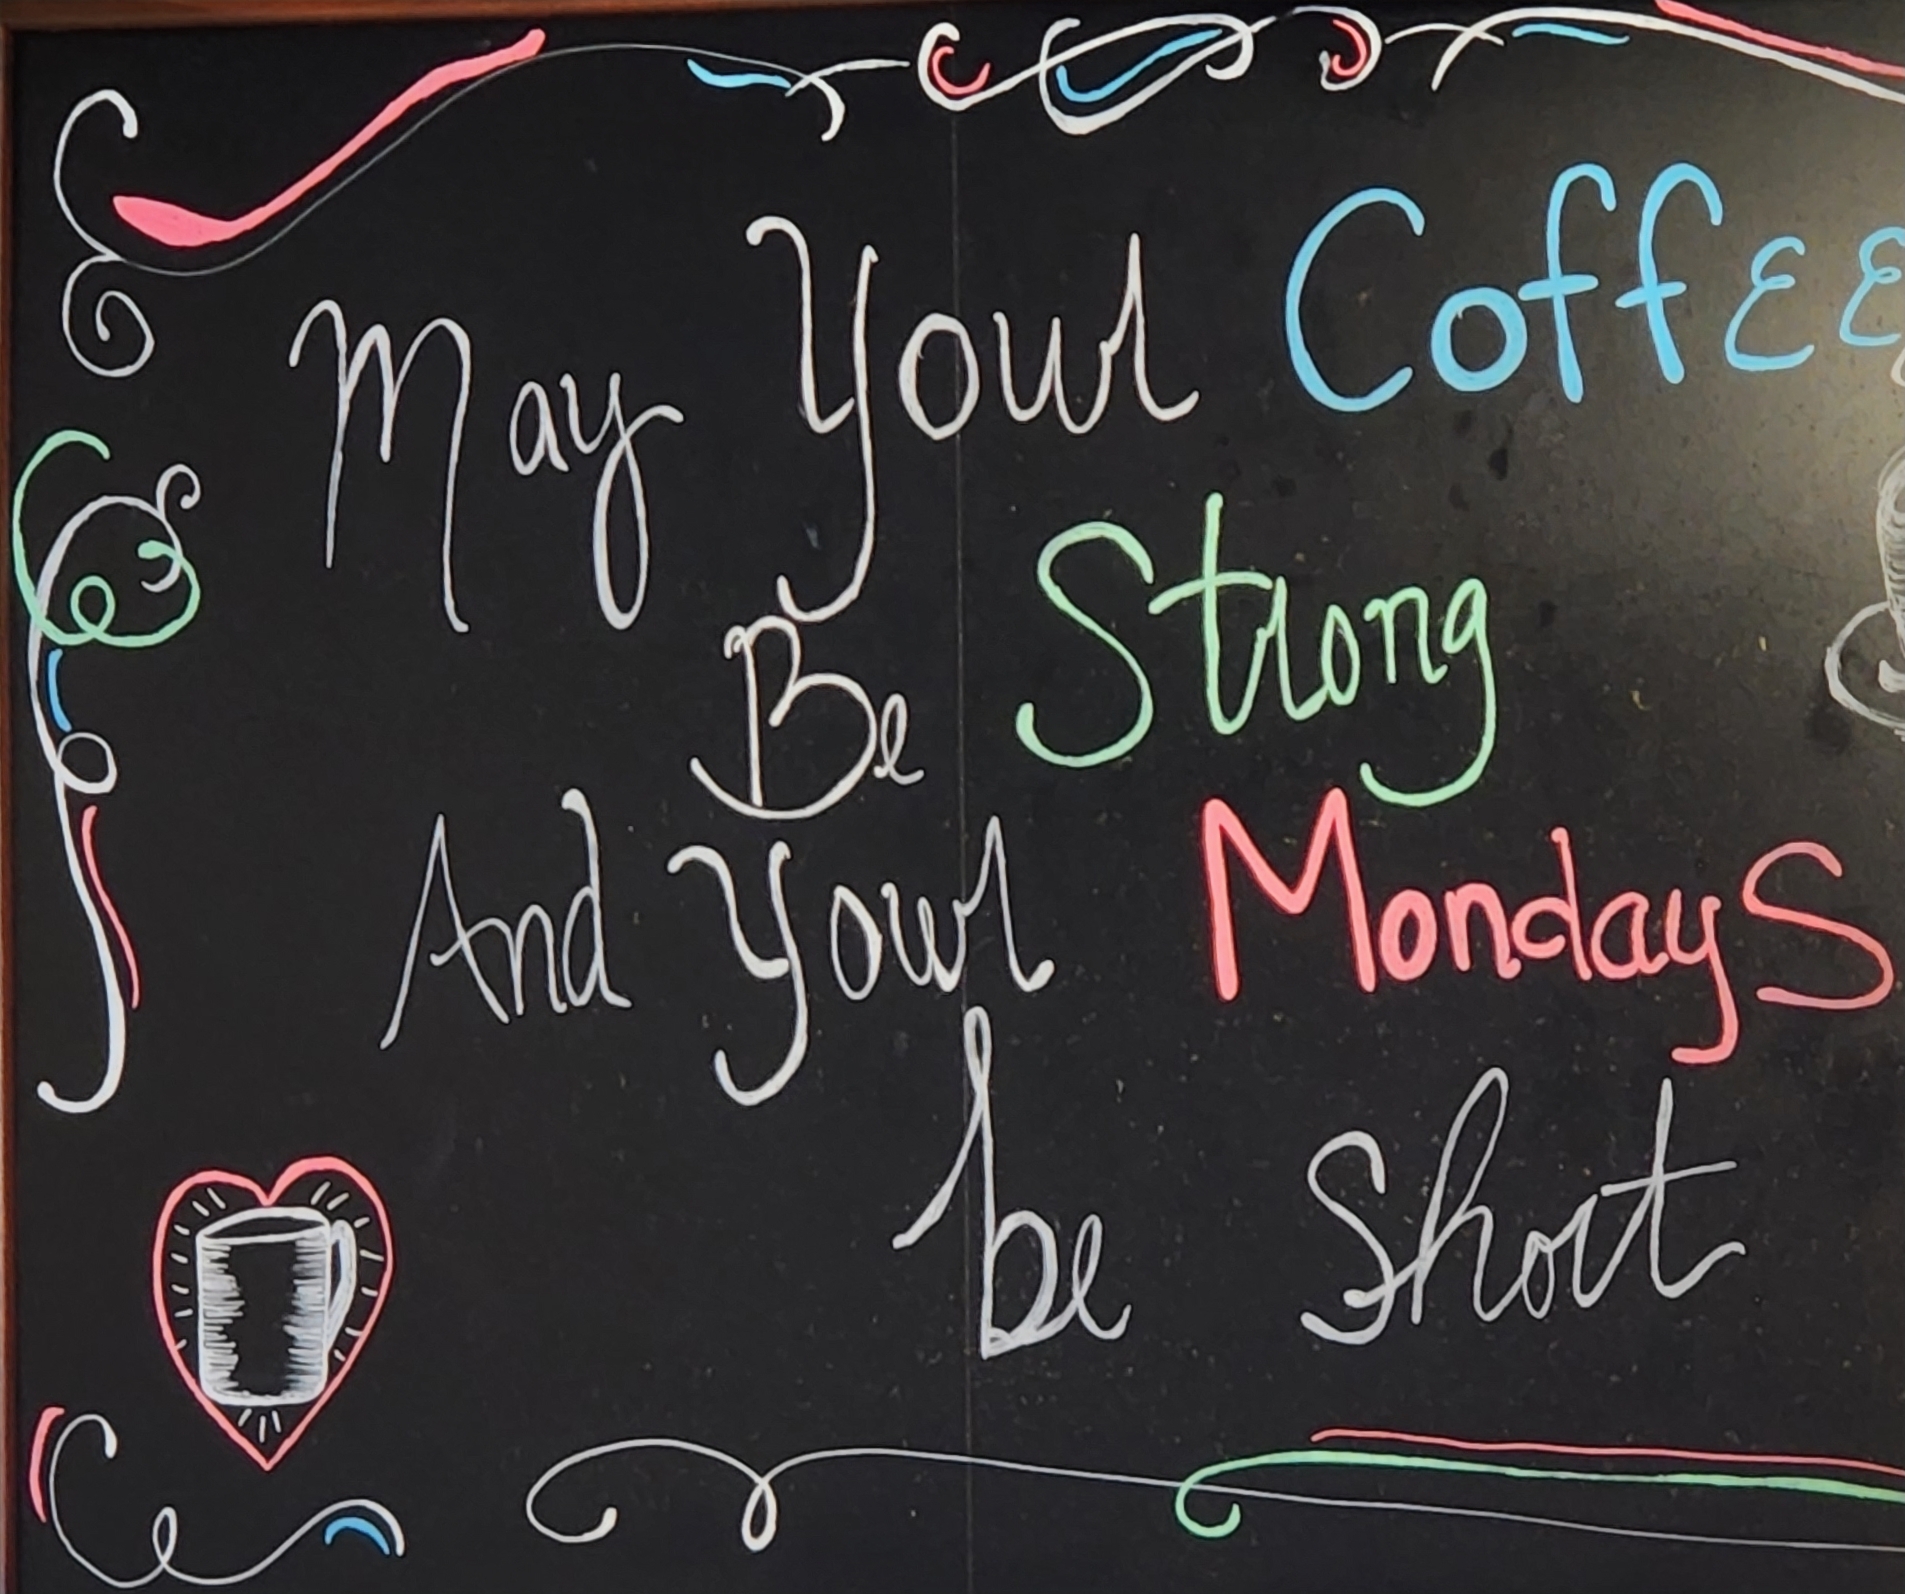 May Your Coffee
Be Strong
And Your Mondays
be Short